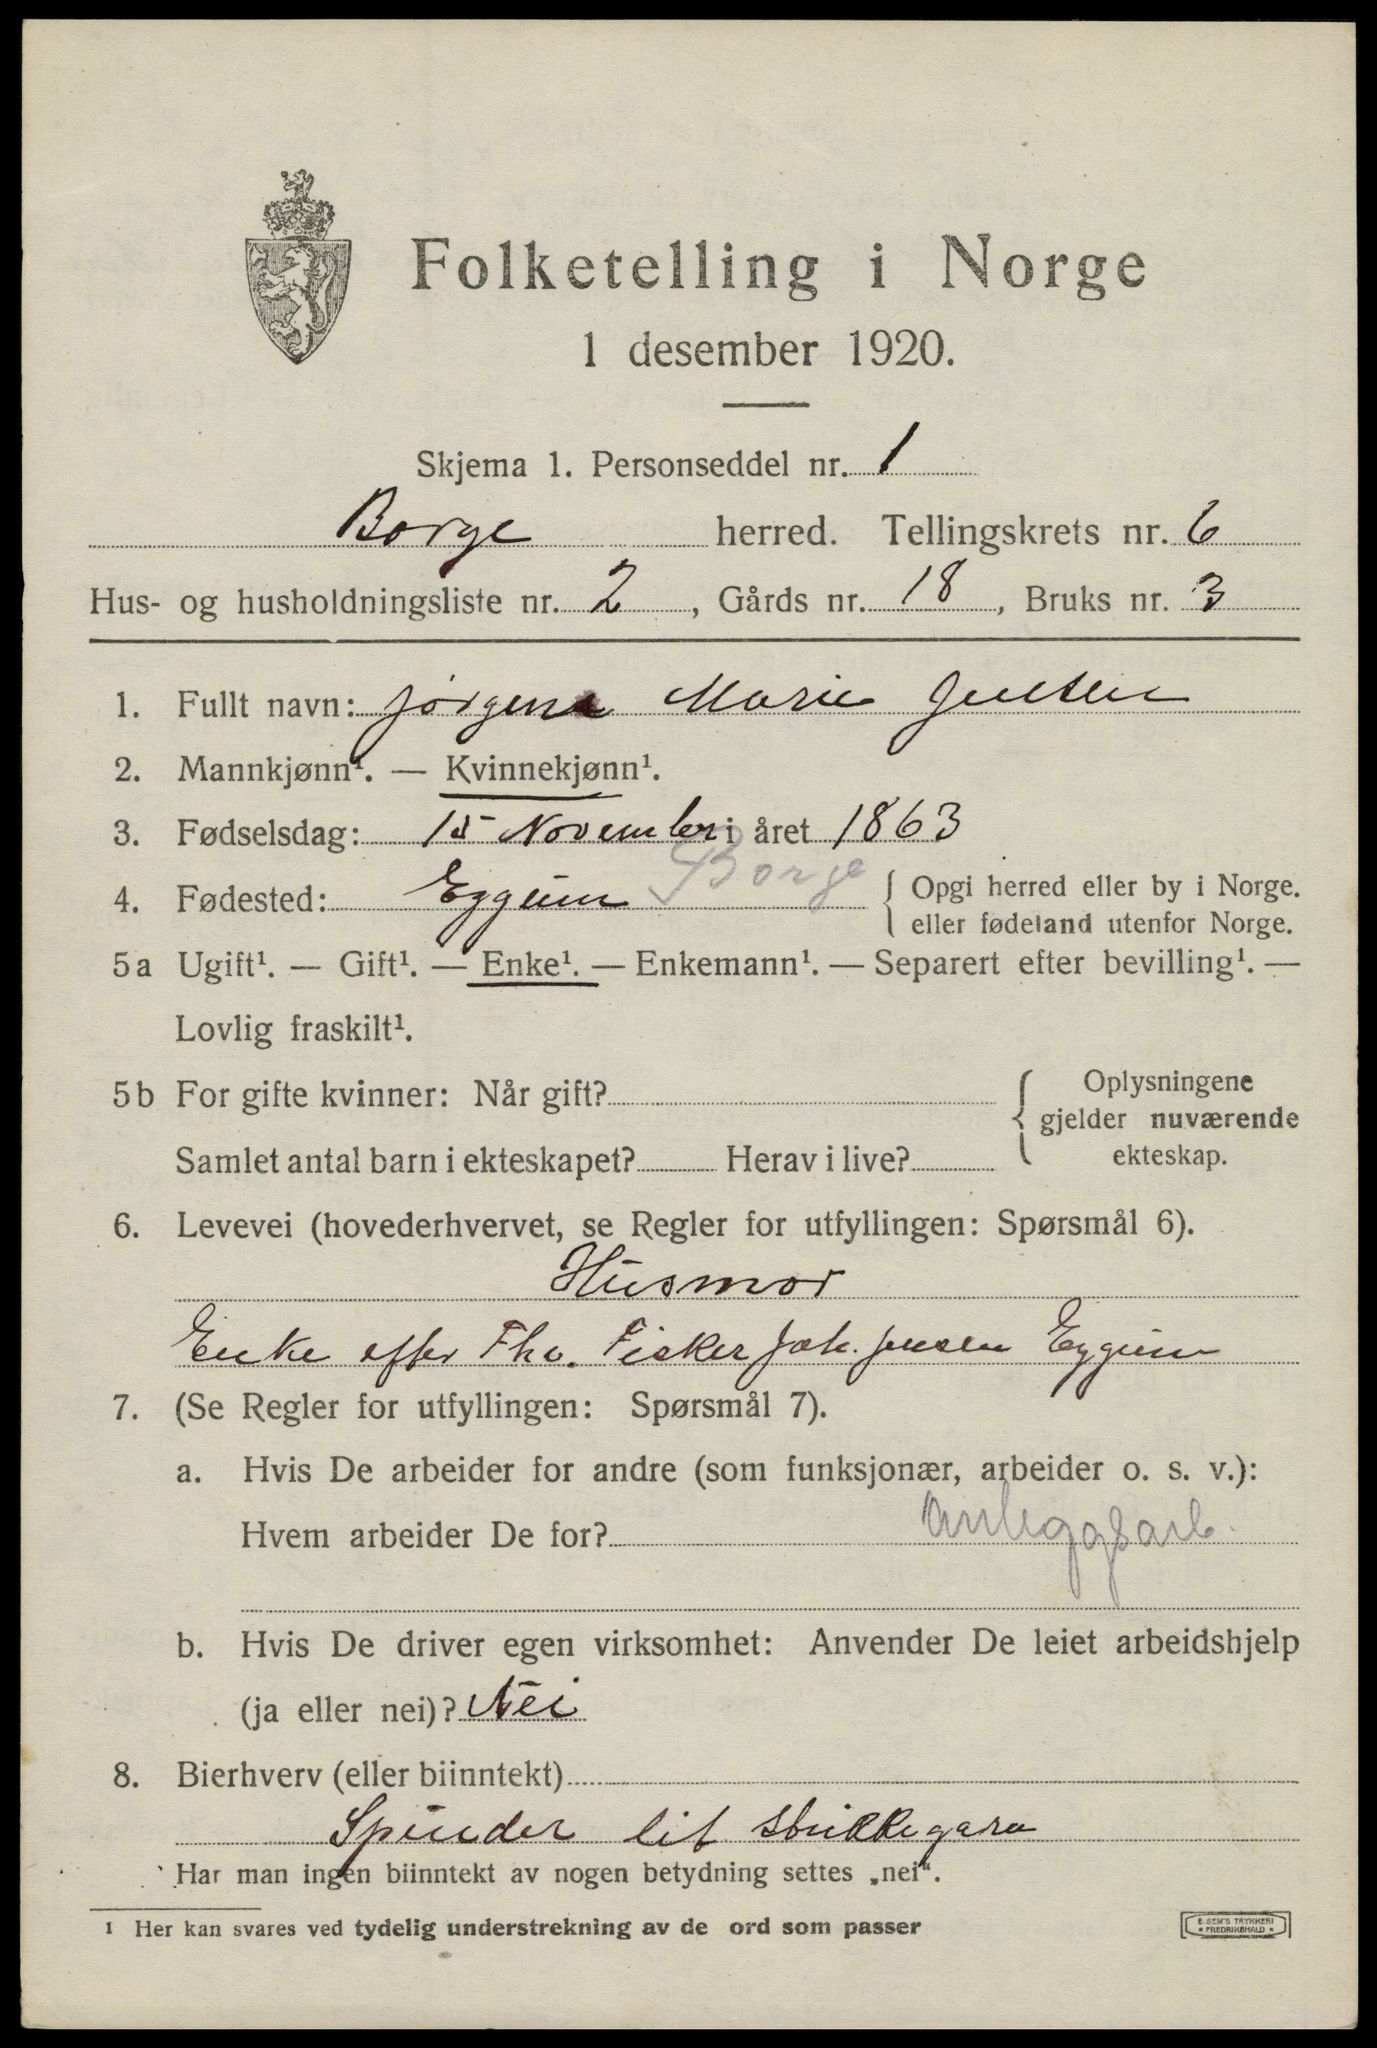 Folketelling i Norge
1 desember 1920.
Skjema 1. Personseddel nr. 1
Borge herred. Tellingskrets nr. 6
Hus- og husholdningsliste nr. 2, Gårds nr. 18, Bruks nr. 3
1. Fullt navn: Jørgine Marie Jensen
2. Mannkjønn¹. — Kvinnekjønn¹.
3. Fødselsdag: 15 November i året 1863
4. Fødested: Eggum Borge { Opgi herred eller by i Norge.
eller fødeland utenfor Norge.
5a Ugift¹. — Gift¹. — Enke¹. — Enkemann¹. — Separert efter bevilling¹. —
Lovlig fraskilt¹.
5b For gifte kvinner: Når gift?
Samlet antal barn i ekteskapet? Herav i live?
{ Oplysningene
gjelder nuværende
ekteskap.
6. Levevei (hovederhvervet, se Regler for utfyllingen: Spørsmål 6).
Husmor
Enke efter Fhv. Fisker Joh. Jensen Eggum
7. (Se Regler for utfyllingen: Spørsmål 7).
a. Hvis De arbeider for andre (som funksjonær, arbeider o. s. v.):
Hvem arbeider De for? anleggsarb.
b. Hvis De driver egen virksomhet: Anvender De leiet arbeidshjelp
(ja eller nei)? Nei
8. Bierhverv (eller biinntekt)
Spinder lit strikkegarn
Har man ingen biinntekt av nogen betydning settes „nei“.
1 Her kan svares ved tydelig understrekning av de ord som passer
E. SEM'S TRYKKERI
• FREDRIKSHALD •